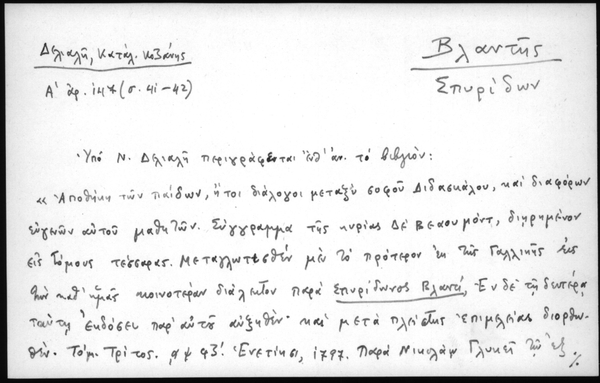 Δελιαλῆ, Κατάλ. Κοζάνης
Α' ἀρ. 147 (σ. 41-42)
Βλαντῆς
Σπυρίδων
Ὑπό Ν. Δελιαλῆ περιγράφεται ἔνθ' ἀν. τό βιβλίον:
«Ἀποθήκη τῶν παίδων, ἤτοι διάλογοι μεταξύ σοφοῦ Διδασκάλου, καί διαφόρων
εὐγενῶν αὐτοῦ μαθητῶν. Σύγγραμμα τῆς κυρίας Δέ Βεαουμόντ, διῃρημένον
εἰς τόμους τέσσαρας. Μεταγλωττισθέν μέν τό πρότερον ἐκ τῆς Γαλλικῆς εἰς
τήν καθ' ἡμᾶς κοινοτέραν διάλεκτον παρά Σπυρίδωνος Βλαντῆ, Ἐν δέ τῇ δευτέρᾳ
ταύτῃ ἐκδόσει παρ' αὐτοῦ αὐξηθέν καί μετά πλείστης ἐπιμελείας διορθω-
θέν. Τόμ. Τρίτος. αψϟζ'. Ἐνετίῃσι, 1797. Παρά Νικολάῳ Γλυκεῖ τῷ ἐξ ./.